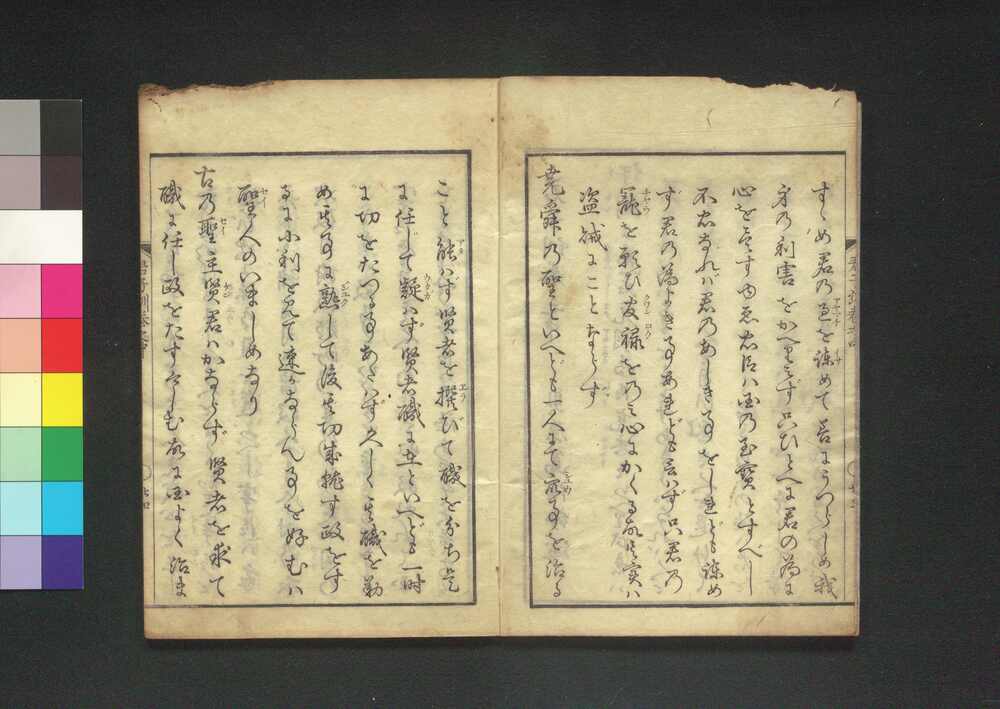 すゝめ君の過を諫めて善にうつらしめ我
身の利害をかへりみず只ひとへに君の為に
心を尽す也忠臣ハ国の至宝とすべし
不忠なれバ君のあしき事をしれども諫め
ず君の為よき事あれども言ハず只君の
寵を頼ひ爵禄をのミ心にかくる故其実ハ
盗賊にことならず
堯舜の聖といへども一人にて万事を治る
こと能ハず賢者を撰びて職を分ち是
に任じて疑ハず賢者職に立といへども一時
に功をたつる事あたハず久しく其職を勤
め其事に熟して後其功成就す政をす
るに小利を見て速かならん事を好むハ
聖人のいましめなり
古の聖主賢君ハかならず賢者を求て
職に任し政をたすけしむ故に国よく治ま